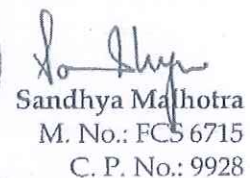 Sandhya Malhotra
M. No.: FCS 6715
C. P. No.: 9928